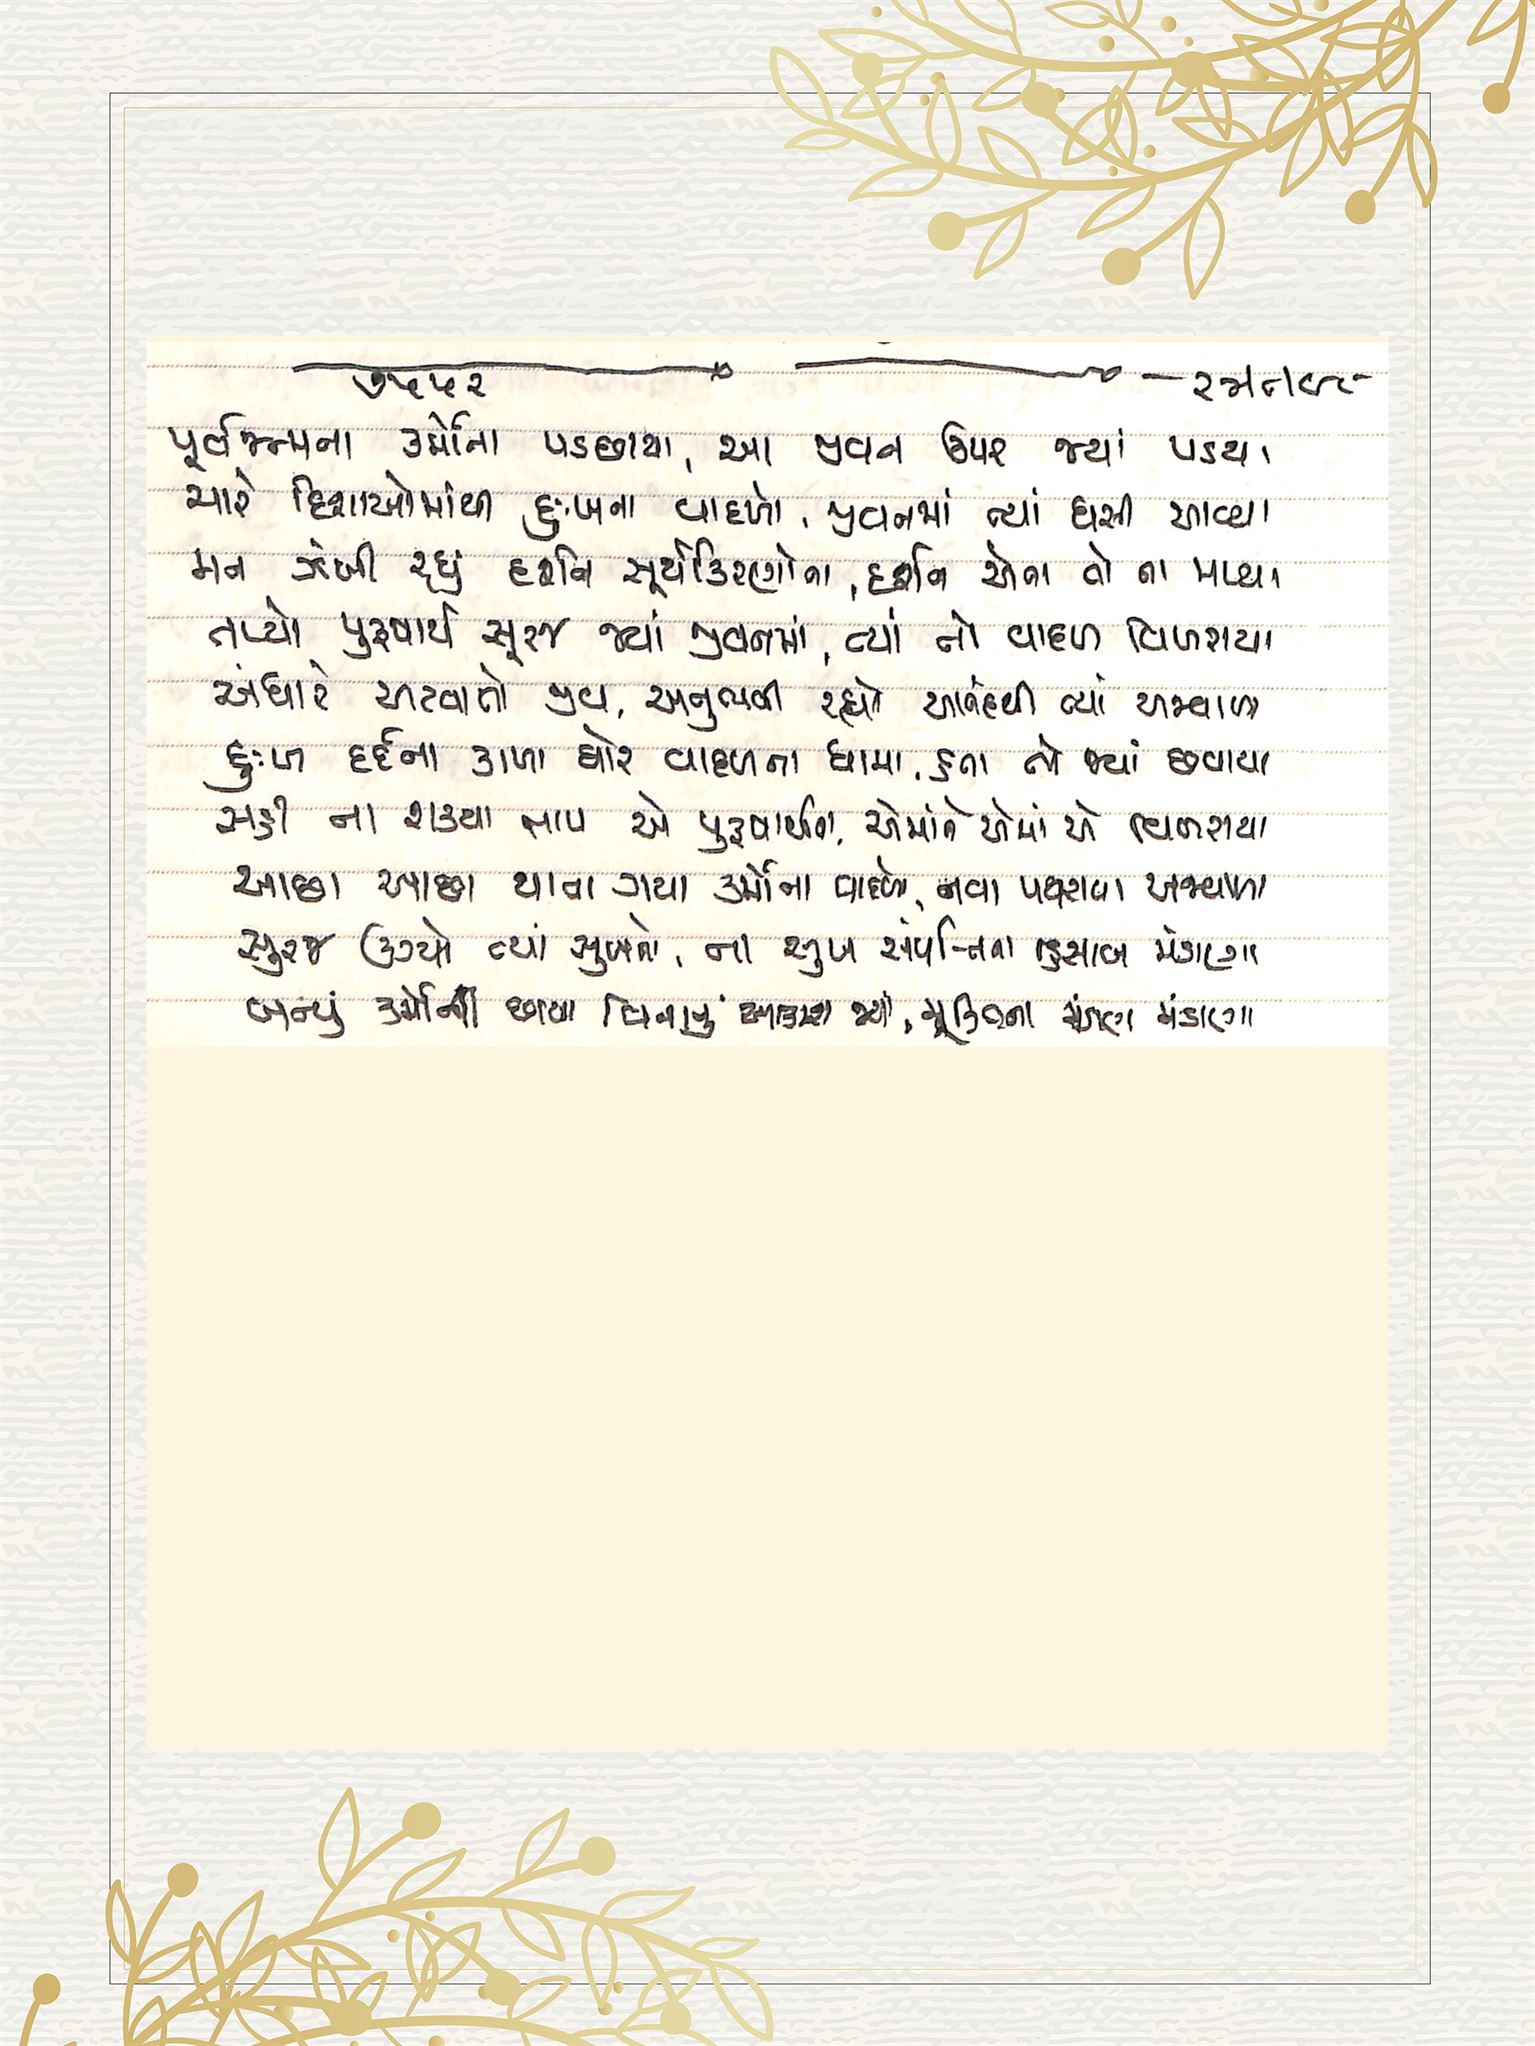 ૭૫૫૨
પૂર્વજન્મના કર્મોના પડછાયા, આ જીવન ઉપર જ્યાં પડયા
ચારે દિશાઓમાંથી દુઃખના વાદળો, જીવનમાં ત્યાં ધસી આવ્યા
મન ઝંખી રહ્યું દર્શન સૂર્યકિરણોના, દર્શન એના તો ના મળ્યા
તપ્યો પુરૂષાર્થ સૂરજ જ્યાં જીવનમાં, ત્યાં તો વાદળ વિખરાયા
અંધારે અટવાતો જીવ, અનુભવી રહ્યો આનંદથી ત્યાં અજવાળા
દુઃખ દર્દના કાળા ઘોર વાદળના ધામા, હતા તો જ્યાં છવાયા
સહી ના શક્યા તાપ એ પુરૂષાર્થના, એમાંને એમાં એ વિખરાયા
આછા આછા થાતા ગયા કર્મોના વાદળો, નવા પથરાયા અજવાળા
સુરજ ઉગ્યો ત્યાં સુખનો, ના સુખ સંપત્તિના હિસાબ મંડાણા
બન્યું કર્મોની છાયા વિનાનું આકાશ જ્યાં, મુક્તિના મંડાણા